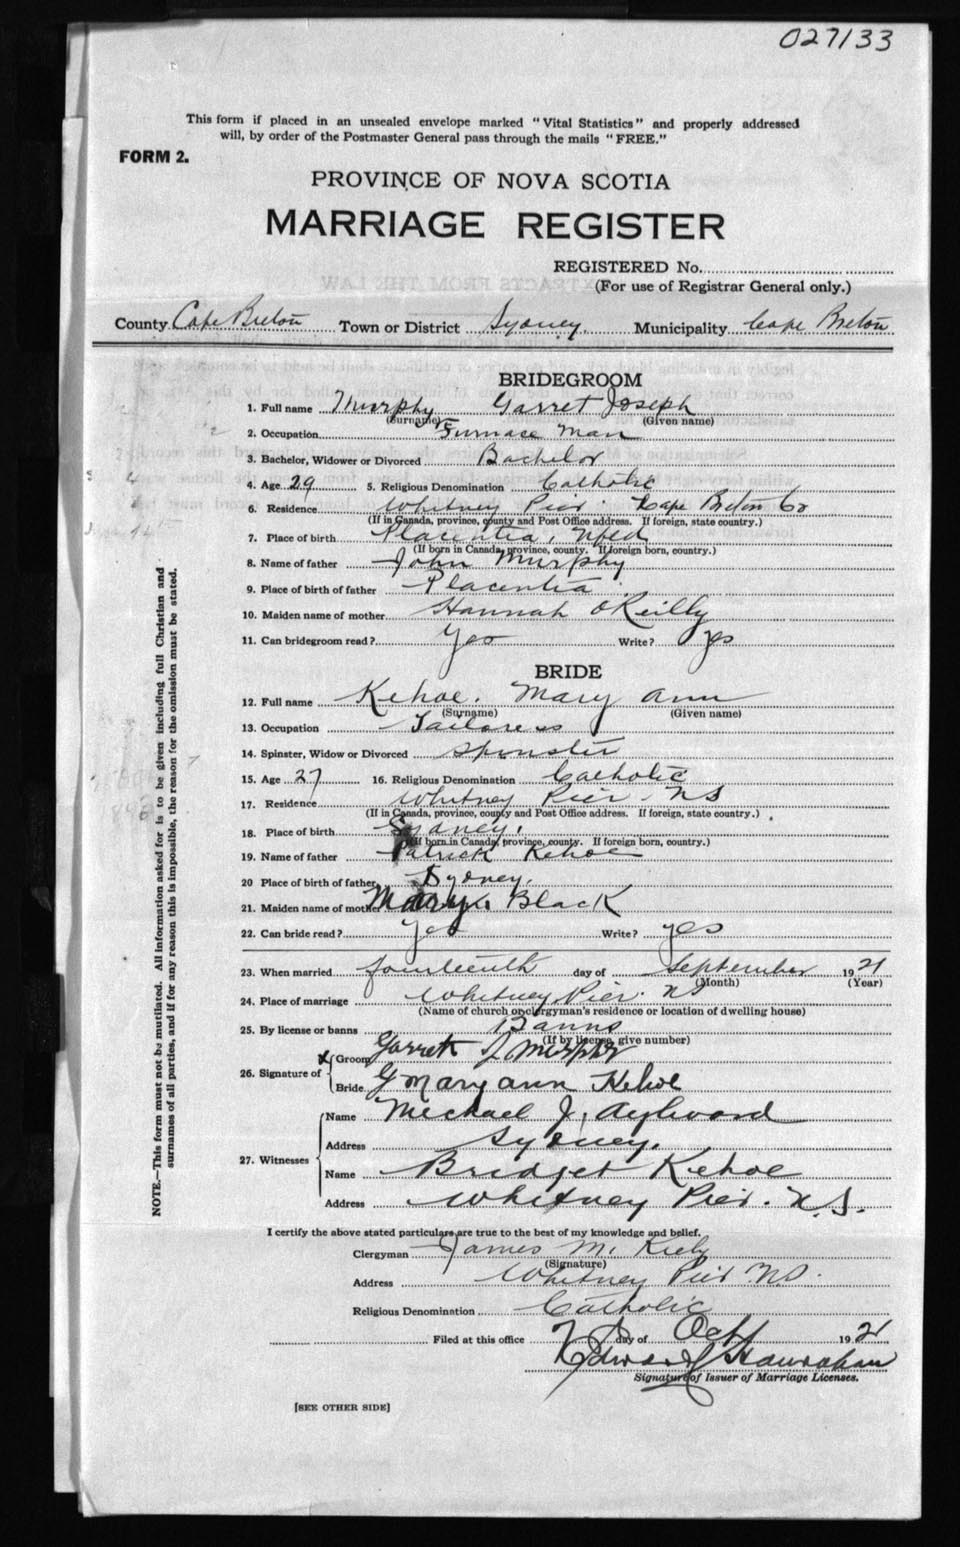 027133
This form if placed in an unsealed envelope marked "Vital Statistics" and properly addressed
will, by order of the Postmaster General pass through the mails "FREE."
FORM 2.
PROVINCE OF NOVA SCOTIA
MARRIAGE REGISTER
REGISTERED No.
(For use of Registrar General only.)
County Cape Breton Town or District Sydney Municipality Cape Breton
BRIDEGROOM
1. Full name Murphy Garret Joseph
(Surname) (Given name)
2. Occupation Furnace Man
3. Bachelor, Widower or Divorced Bachelor
4. Age 29 5. Religious Denomination Catholic
6. Residence Whitney Pier Cape Breton Co
(If in Canada, province, county and Post Office address. If foreign, state country.)
7. Place of birth Placentia, Nfld
(If born in Canada, province, county. If foreign born, country.)
8. Name of father John Murphy
9. Place of birth of father Placentia
10. Maiden name of mother Hannah O'Reilly
11. Can bridegroom read? Yes Write? yes
BRIDE
12. Full name Kehoe. Mary Ann
(Surname) (Given name)
13. Occupation Tailoress
14. Spinster, Widow or Divorced Spinster
15. Age 27 16. Religious Denomination Catholic
17. Residence Whitney Pier NS
(If in Canada, province, county and Post Office address. If foreign, state country.)
18. Place of birth Sydney.
(If born in Canada, province, county. If foreign born, country.)
19. Name of father Patrick Kehoe
20 Place of birth of father Sydney.
21. Maiden name of mother Mary Black
22. Can bride read? Yes Write? yes
23. When married fourteenth day of September 1921
(Month) (Year)
24. Place of marriage Whitney Pier. NS
(Name of church or clergyman's residence or location of dwelling house)
25. By license or banns Banns
(If by license, give number)
26. Signature of
x Groom Garrett J. Murphy
Bride Mary Ann Kehoe
27. Witnesses
Name Michael J. Aylward
Address Sydney.
Name Bridget Kehoe
Address Whitney Pier. N.S.
I certify the above stated particulars are true to the best of my knowledge and belief.
Clergyman James M. Kiely
(Signature)
Address Whitney Pier NS.
Religious Denomination Catholic
Filed at this office day of Oct 1921
Edward Hanrahan
Signature of Issuer of Marriage Licenses.
[SEE OTHER SIDE]
NOTE.—This form must not be mutilated. All information asked for is to be given including full Christian and
surnames of all parties, and if for any reason this is impossible, the reason for the omission must be stated.